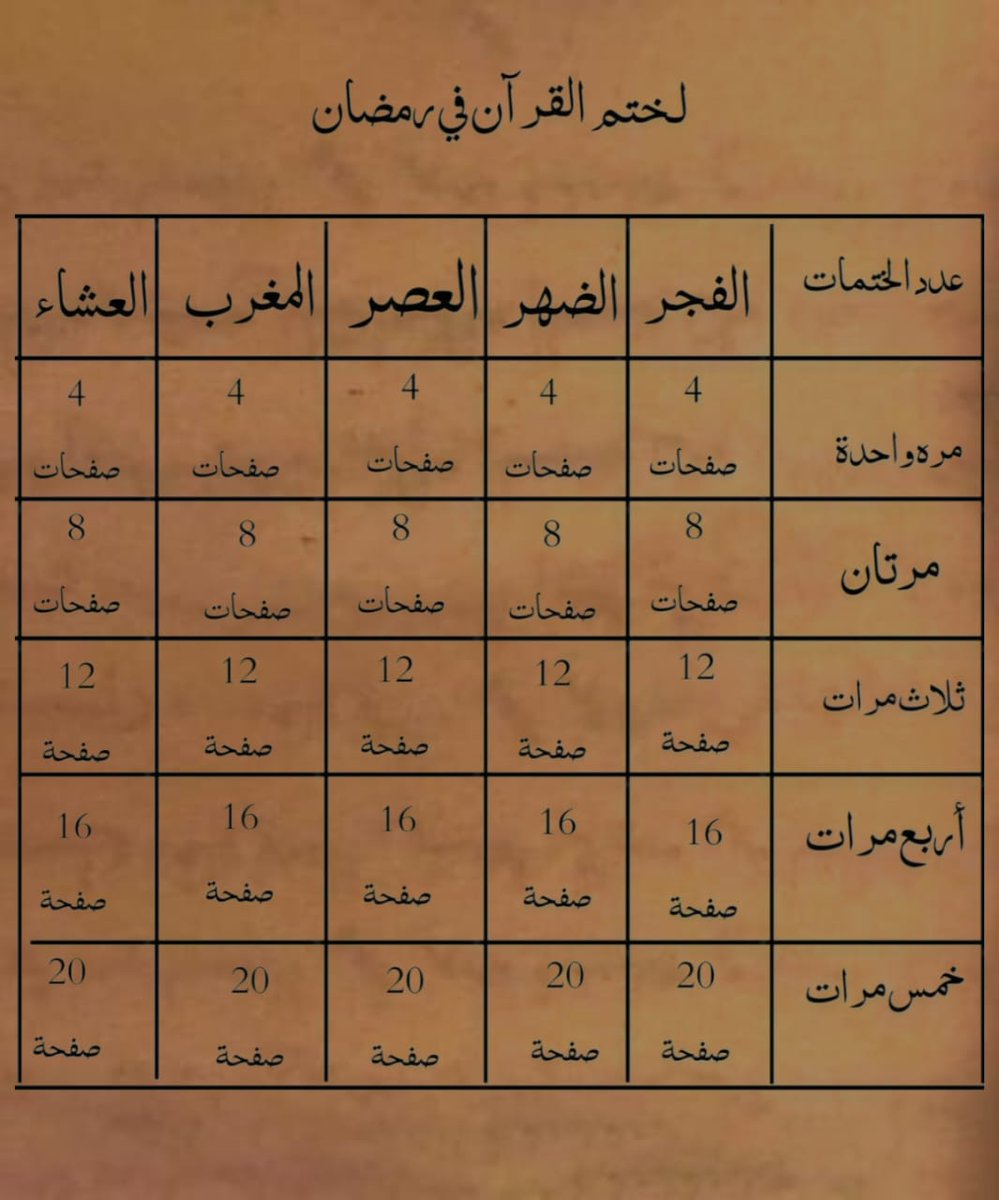 لختم القرآن في رمضان
عدد الختمات الفجر الضهر العصر المغرب العشاء
مره واحدة 4 صفحات 4 صفحات 4 صفحات 4 صفحات 4 صفحات
مرتان 8 صفحات 8 صفحات 8 صفحات 8 صفحات 8 صفحات
ثلاث مرات 12 صفحة 12 صفحة 12 صفحة 12 صفحة 12 صفحة
أربع مرات 16 صفحة 16 صفحة 16 صفحة 16 صفحة 16 صفحة
خمس مرات 20 صفحة 20 صفحة 20 صفحة 20 صفحة 20 صفحة